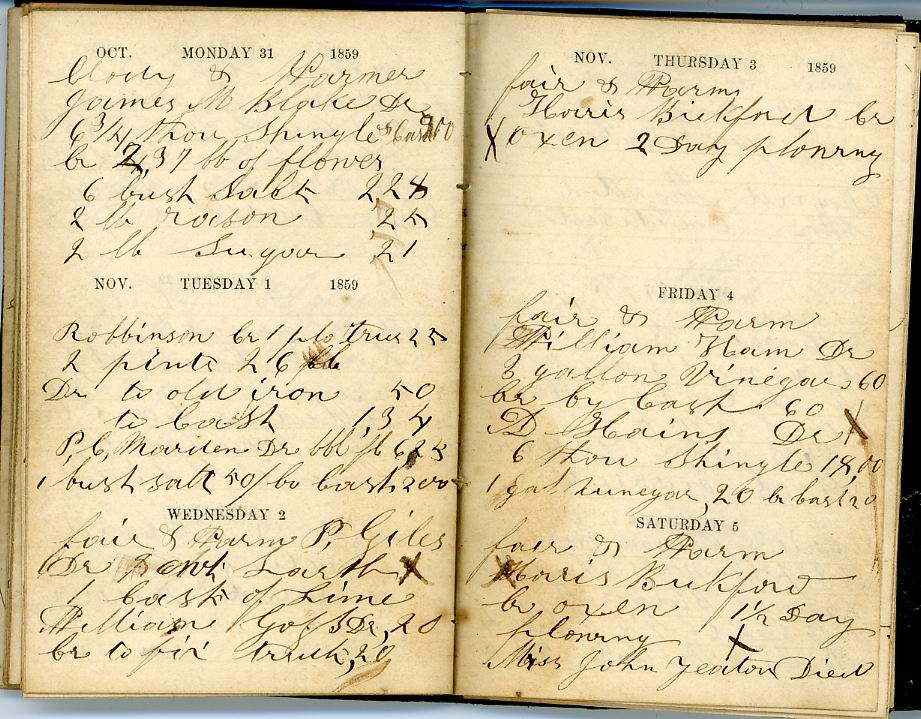 OCT. MONDAY 31 1859
Clody & Warmer
James M Blake Dr
6 3/4 thou Shingles Cash 200
br 2,37 bb of flower
6 bush Salt 2 2 8
2 lb rason 25
2 lb Sugar 21
NOV. TUESDAY 1 1859
Robbinson br 1 25
2 pints 26
Dr to old iron 50
to Cash 1,34
P, C, Marden Dr bbl fl 625
1 bush salt 50/ br Cash 200
WEDNESDAY 2
fair & Warm P, Giles
Dr Larth X
1 Cask of Lime
William Gof Dr, 20
br to fix truck, 20
NOV. THURSDAY 3 1859
fair & Warm
Horis Bickford br
X oxen 2 Day plowrny
FRIDAY 4
fair & Warm
William Ham Dr
3 gallon Vinegar 60
br by Cash 60
D Hains Dr X
6 thou Shingle 18,00
1 gal Vinegar, 20 br Cash 20
SATURDAY 5
fair & Warm
Horis Bickford
br oxen 1 1/2 Day
plowrny X
Miss John Yeaton Died